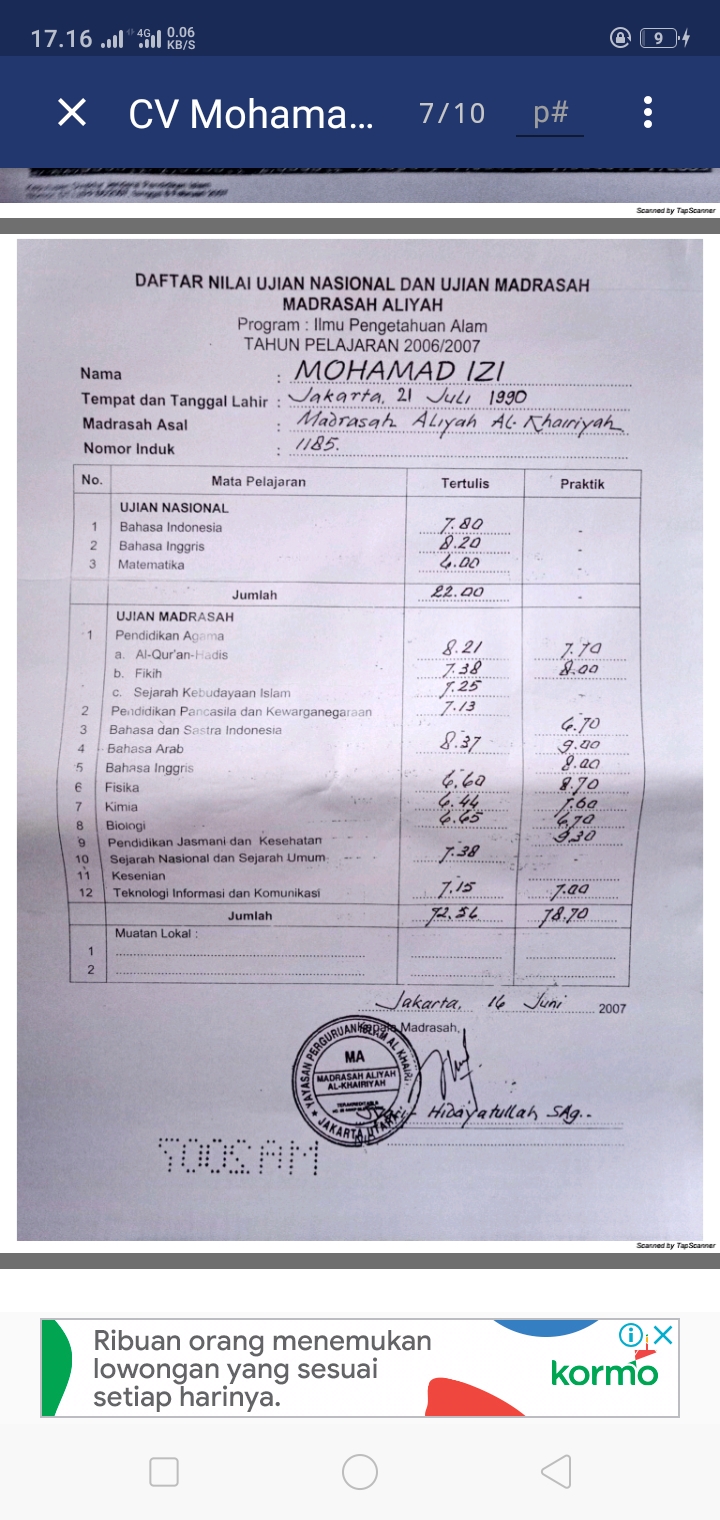 17.16 4G 0.06 KB/S 9
CV Mohama... 7/10 p#
Scanned by TapScanner
DAFTAR NILAI UJIAN NASIONAL DAN UJIAN MADRASAH
MADRASAH ALIYAH
Program : Ilmu Pengetahuan Alam
TAHUN PELAJARAN 2006/2007
Nama : MOHAMAD IZI
Tempat dan Tanggal Lahir : Jakarta, 21 Juli 1990
Madrasah Asal : Madrasah Aliyah AL-Khairiyah
Nomor Induk : 1185.
No. Mata Pelajaran Tertulis Praktik
UJIAN NASIONAL
1 Bahasa Indonesia 7.80 -
2 Bahasa Inggris 8.20 -
3 Matematika 6.00 -
Jumlah 22.00 -
UJIAN MADRASAH
1 Pendidikan Agama
a. Al-Qur'an-Hadis 8.21 7.70
b. Fikih 7.38 8.00
c. Sejarah Kebudayaan Islam 7.25 -
2 Pendidikan Pancasila dan Kewarganegaraan 7.13
3 Bahasa dan Sastra Indonesia - 6.70
4 Bahasa Arab 8.37 9.00
5 Bahasa Inggris - 8.00
6 Fisika 6.60 8.70
7 Kimia 6.44 7.60
8 Biologi 6.65 6.70
9 Pendidikan Jasmani dan Kesehatan - 9.30
10 Sejarah Nasional dan Sejarah Umum 7.38 -
11 Kesenian
12 Teknologi Informasi dan Komunikasi 7.15 7.00
Jumlah 72.56 78.70
Muatan Lokal :
1
2
Jakarta, 16 Juni 2007
Kepala Madrasah,
YAYASAN PERGURUAN ISLAM AL KHAIRI
MA
MADRASAH ALIYAH
AL-KHAIRIYAH
JAKARTA UTARA
Hidayatullah SAg.
Scanned by TapScanner
Ribuan orang menemukan
lowongan yang sesuai
setiap harinya.
kormo